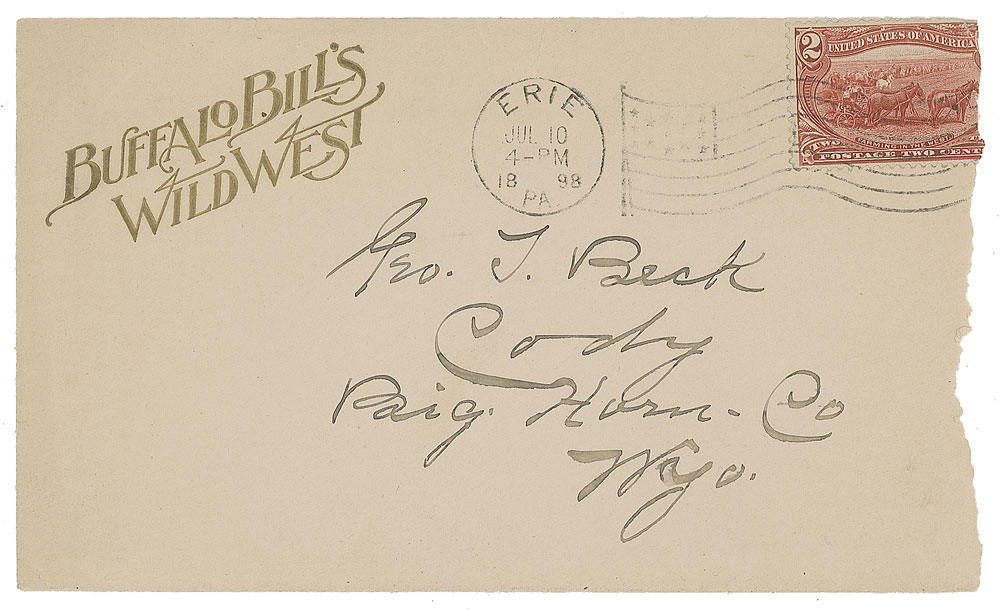 BUFFALO BILL'S
WILD WEST
ERIE
JUL 10
4-PM
18 98
PA.
2
UNITED STATES OF AMERICA
FARMING IN THE WEST
TWO CENT
POSTAGE TWO CENT
Geo. T. Beck
Cody
Big. Horn. Co
Wyo.